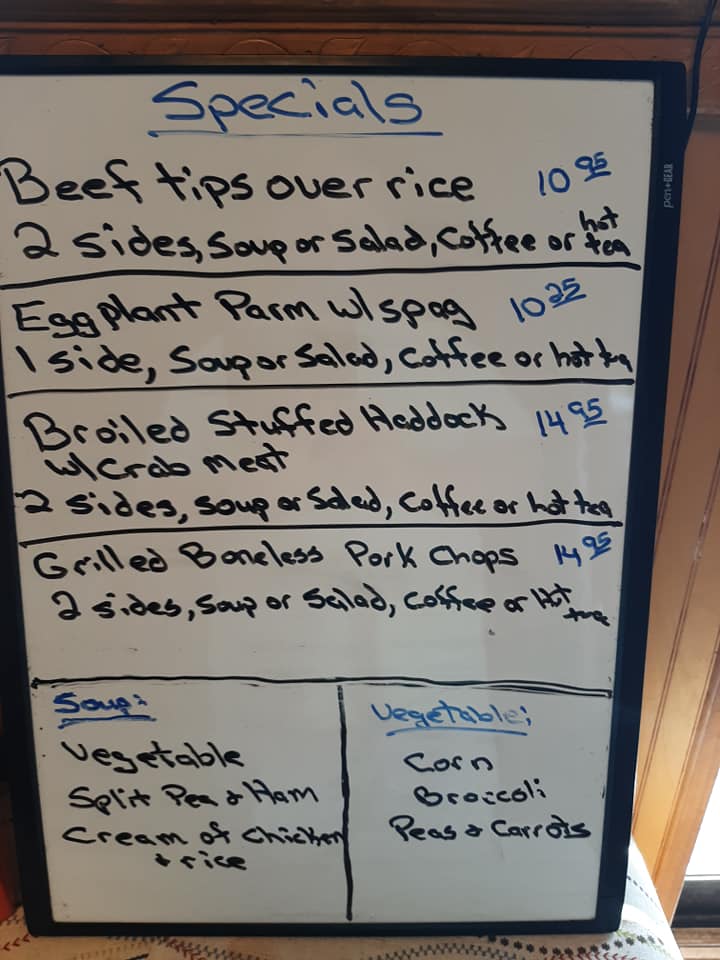 Specials
Beef tips over rice 10 95
2 sides, Soup or Salad, Coffee or hot tea
Eggplant Parm w/ spag 10 25
1 side, Soup or Salad, Coffee or hot tea
Broiled Stuffed Haddock 14 95
w/ Crab meat
2 sides, soup or Salad, Coffee or hot tea
Grilled Boneless Pork Chops 14 95
2 sides, soup or Salad, Coffee or Hot tea
Soup:
Vegetable
Split Pea & Ham
Cream of Chicken
& rice
Vegetable:
Corn
Broccoli
Peas & Carrots
pen+GEAR